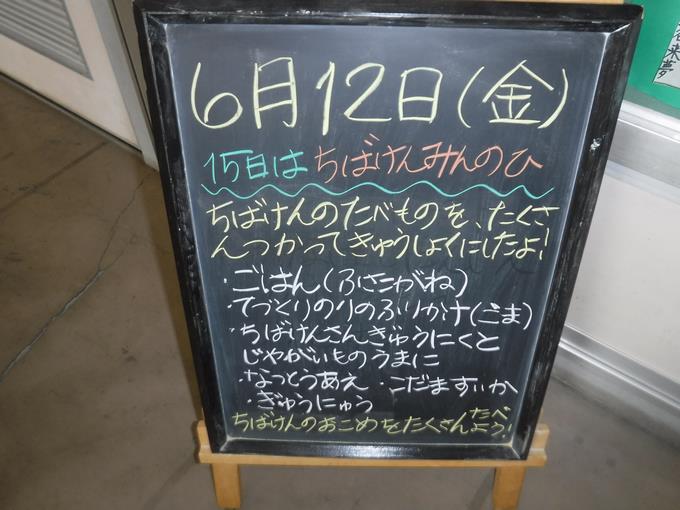 6月12日(金)
15日は ちばけんみんのひ
ちばけんのたべものを、たくさ
んつかってきゅうしょくにしたよ!
・ごはん(ふさこがね)
てづくりのりのふりかけ(ごま)
・ちばけんさんぎゅうにくと
じゃがいものうまに
・なっとうあえ ・こだますいか
・ぎゅうにゅう
ちばけんのおこめをたくさんたべよう!
来夢